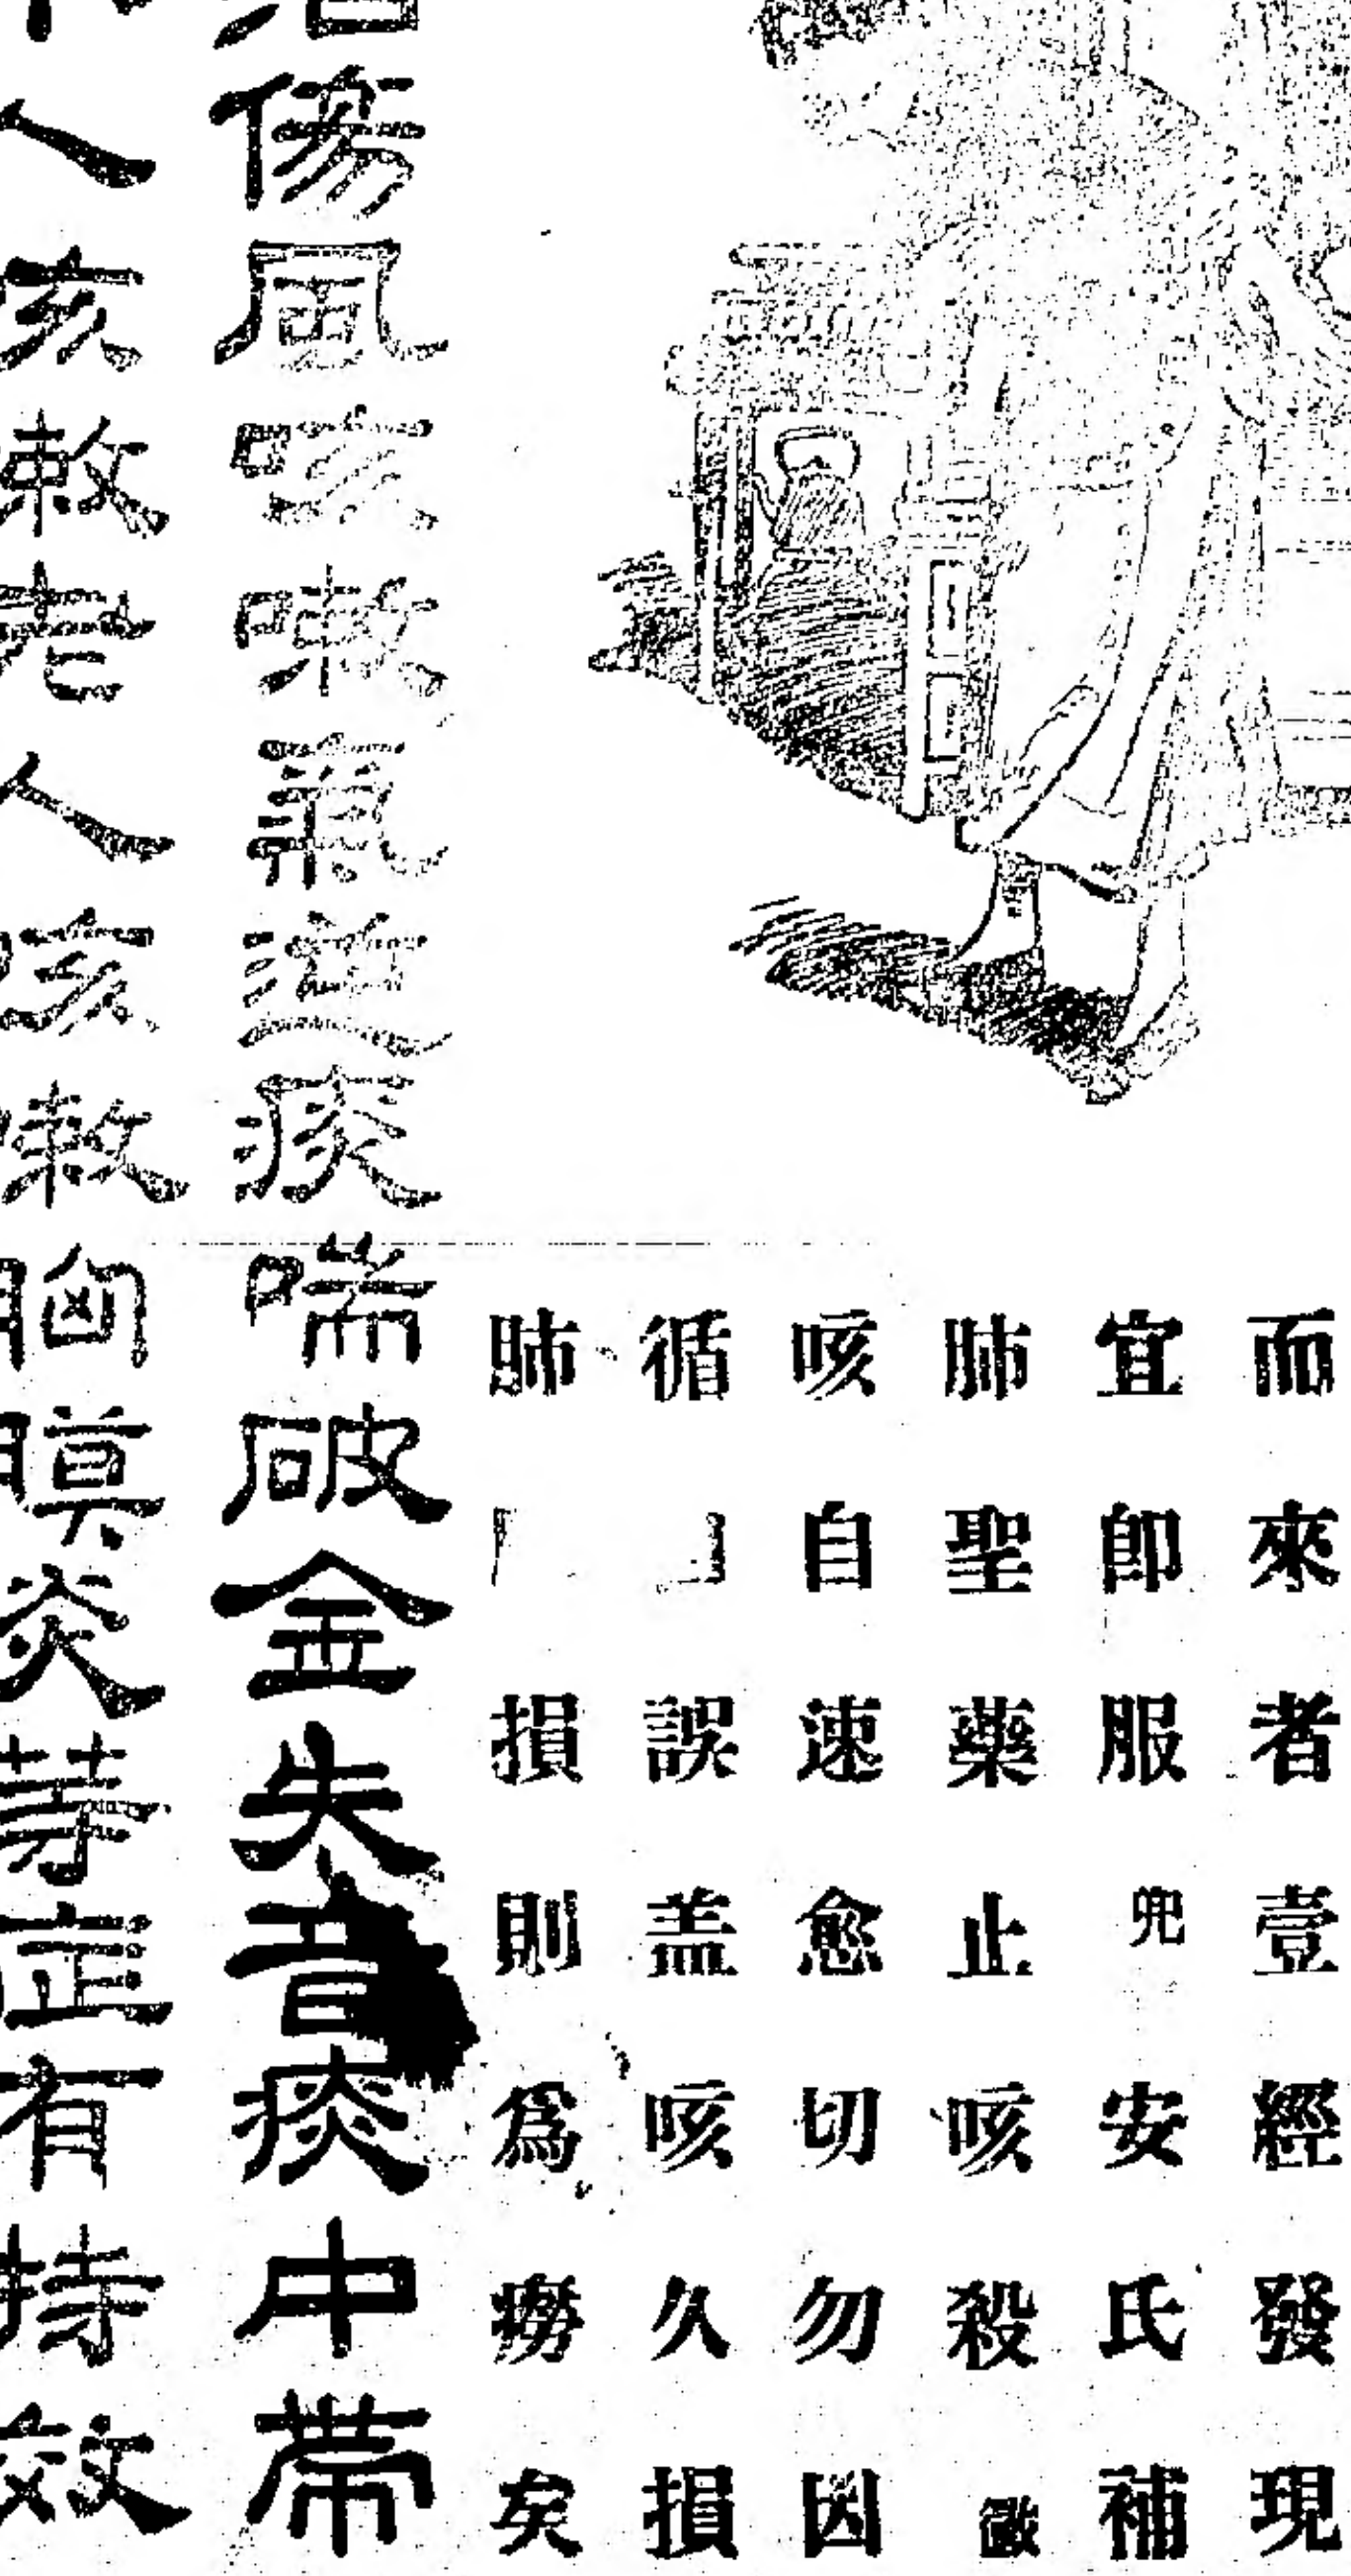 而來者壹經發現
宜即服兜安氏補
肺聖藥止咳殺
咳自速愈切勿因
循誤盖咳久損
肺損則爲癆矣
傷風咳嗽氣逆痰喘破金失音痰中帶
人咳嗽老人咳嗽胸膜炎等症有特效